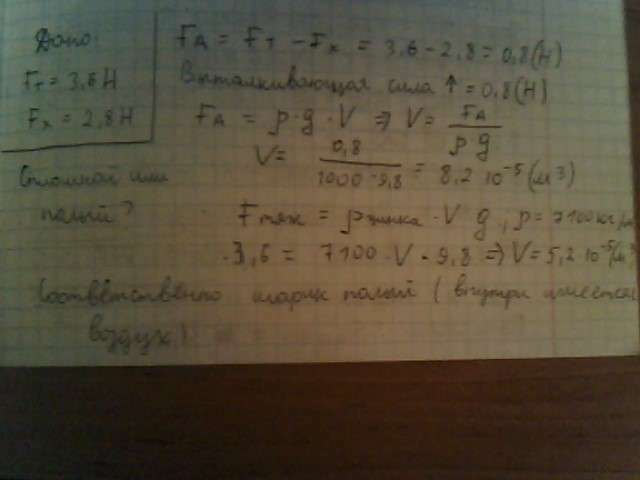 Дано:
Fт = 3,6 Н
Fх = 2,8 Н
Сплошной или
полый?
FА = Fт - Fх = 3,6 - 2,8 = 0,8(Н)
Выталкивающая сила ↑ = 0,8(Н)
FА = ρ·g·V ⇒ V = FА / ρg
V = 0,8 / 1000·9,8 = 8,2 10⁻⁵(м³)
Fтяж = ρцинка · V g, ρ = 7100 кг/
3,6 = 7100 · V · 9,8 ⇒ V = 5,2·10⁻⁵(м³
Соответственно шарик полый (внутри имеется
воздух)